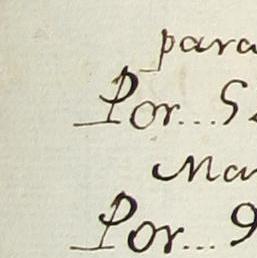 para
Por...5
Mar
Por...9